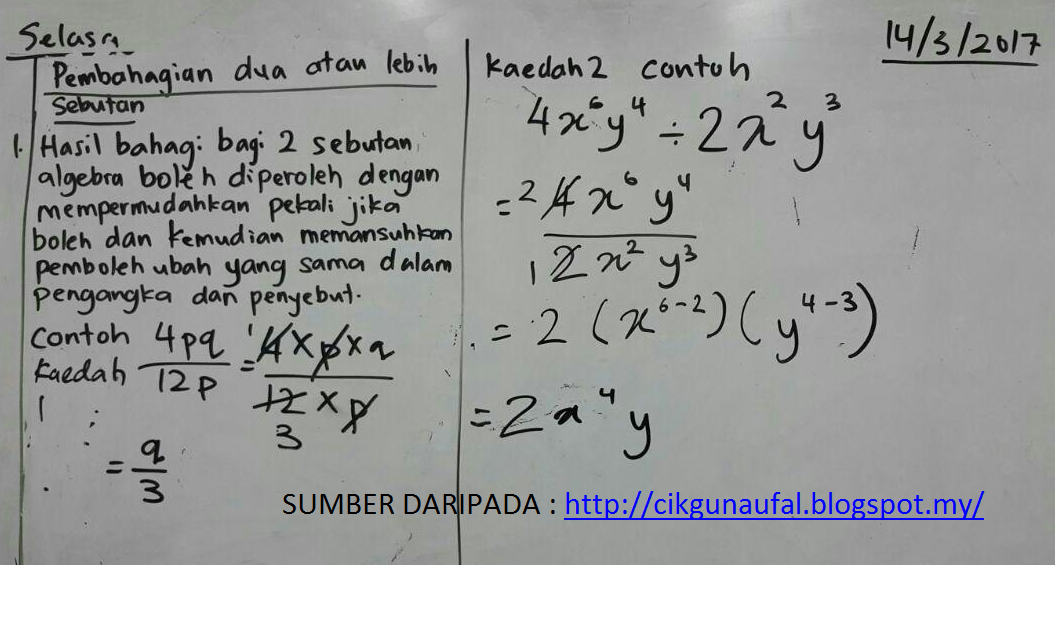 Selasa
14/3/2017
Pembahagian dua atau lebih
Sebutan
1. Hasil bahagi bagi 2 sebutan
algebra boleh diperoleh dengan
mempermudahkan pekali jika
boleh dan kemudian memansuhkan
pemboleh ubah yang sama dalam
pengangka dan penyebut.
Contoh 4pq/12p = ¹4×p×q/12×p
Kaedah 3
1
= q/3
Kaedah 2 contoh
4x⁶y⁴ ÷ 2x²y³
= ²4x⁶y⁴
1 2x²y³
= 2 (x⁶⁻²)(y⁴⁻³)
= 2x⁴y
SUMBER DARIPADA : http://cikgunaufal.blogspot.my/